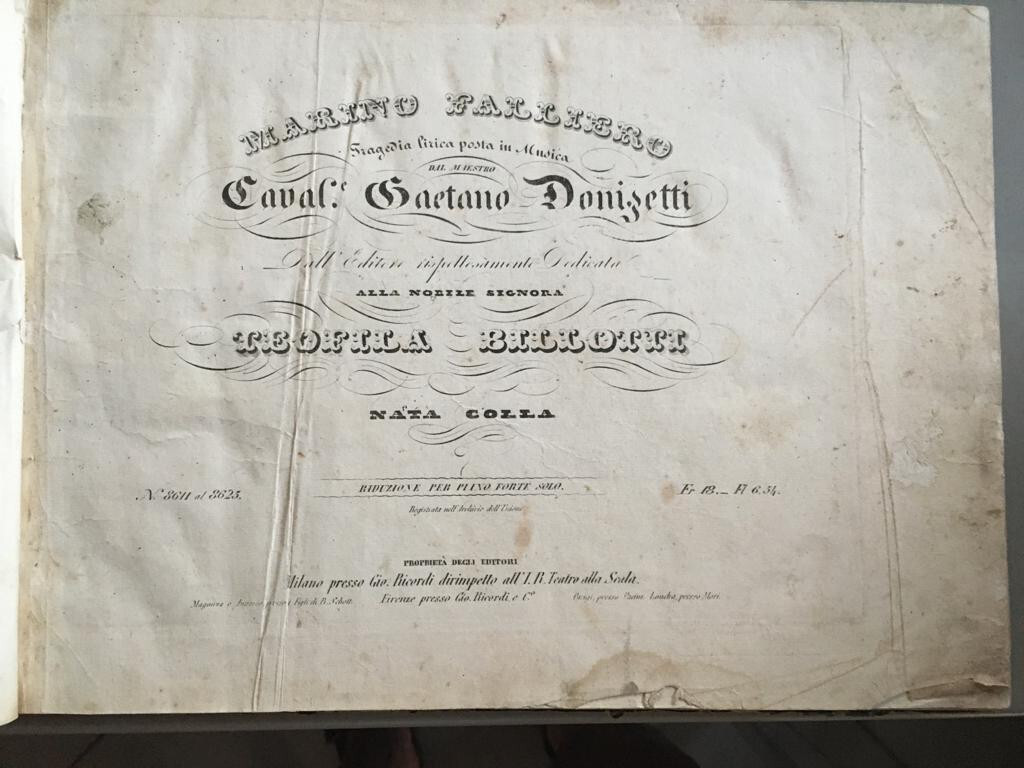 MARINO FALLIERO
Tragedia lirica posta in Musica
DAL MAESTRO
Caval.e Gaetano Donizetti
Dall'Editore rispettosamente Dedicata
ALLA NOBILE SIGNORA
TEOFILA BILLOTTI
NATA COLLA
N.º 8611 al 8625.
RIDUZIONE PER PIANO FORTE SOLO.
Fr 18._ Fl 6.54.
Registrata nell'Archivio dell'Unione
PROPRIETÀ DEGLI EDITORI
Milano presso Gio. Ricordi dirimpetto all'I. R. Teatro alla Scala.
Magonza e Anversa presso i Figli di B. Schott. Firenze presso Gio. Ricordi e C.º Parigi, presso Pacini. Londra, presso Mori.